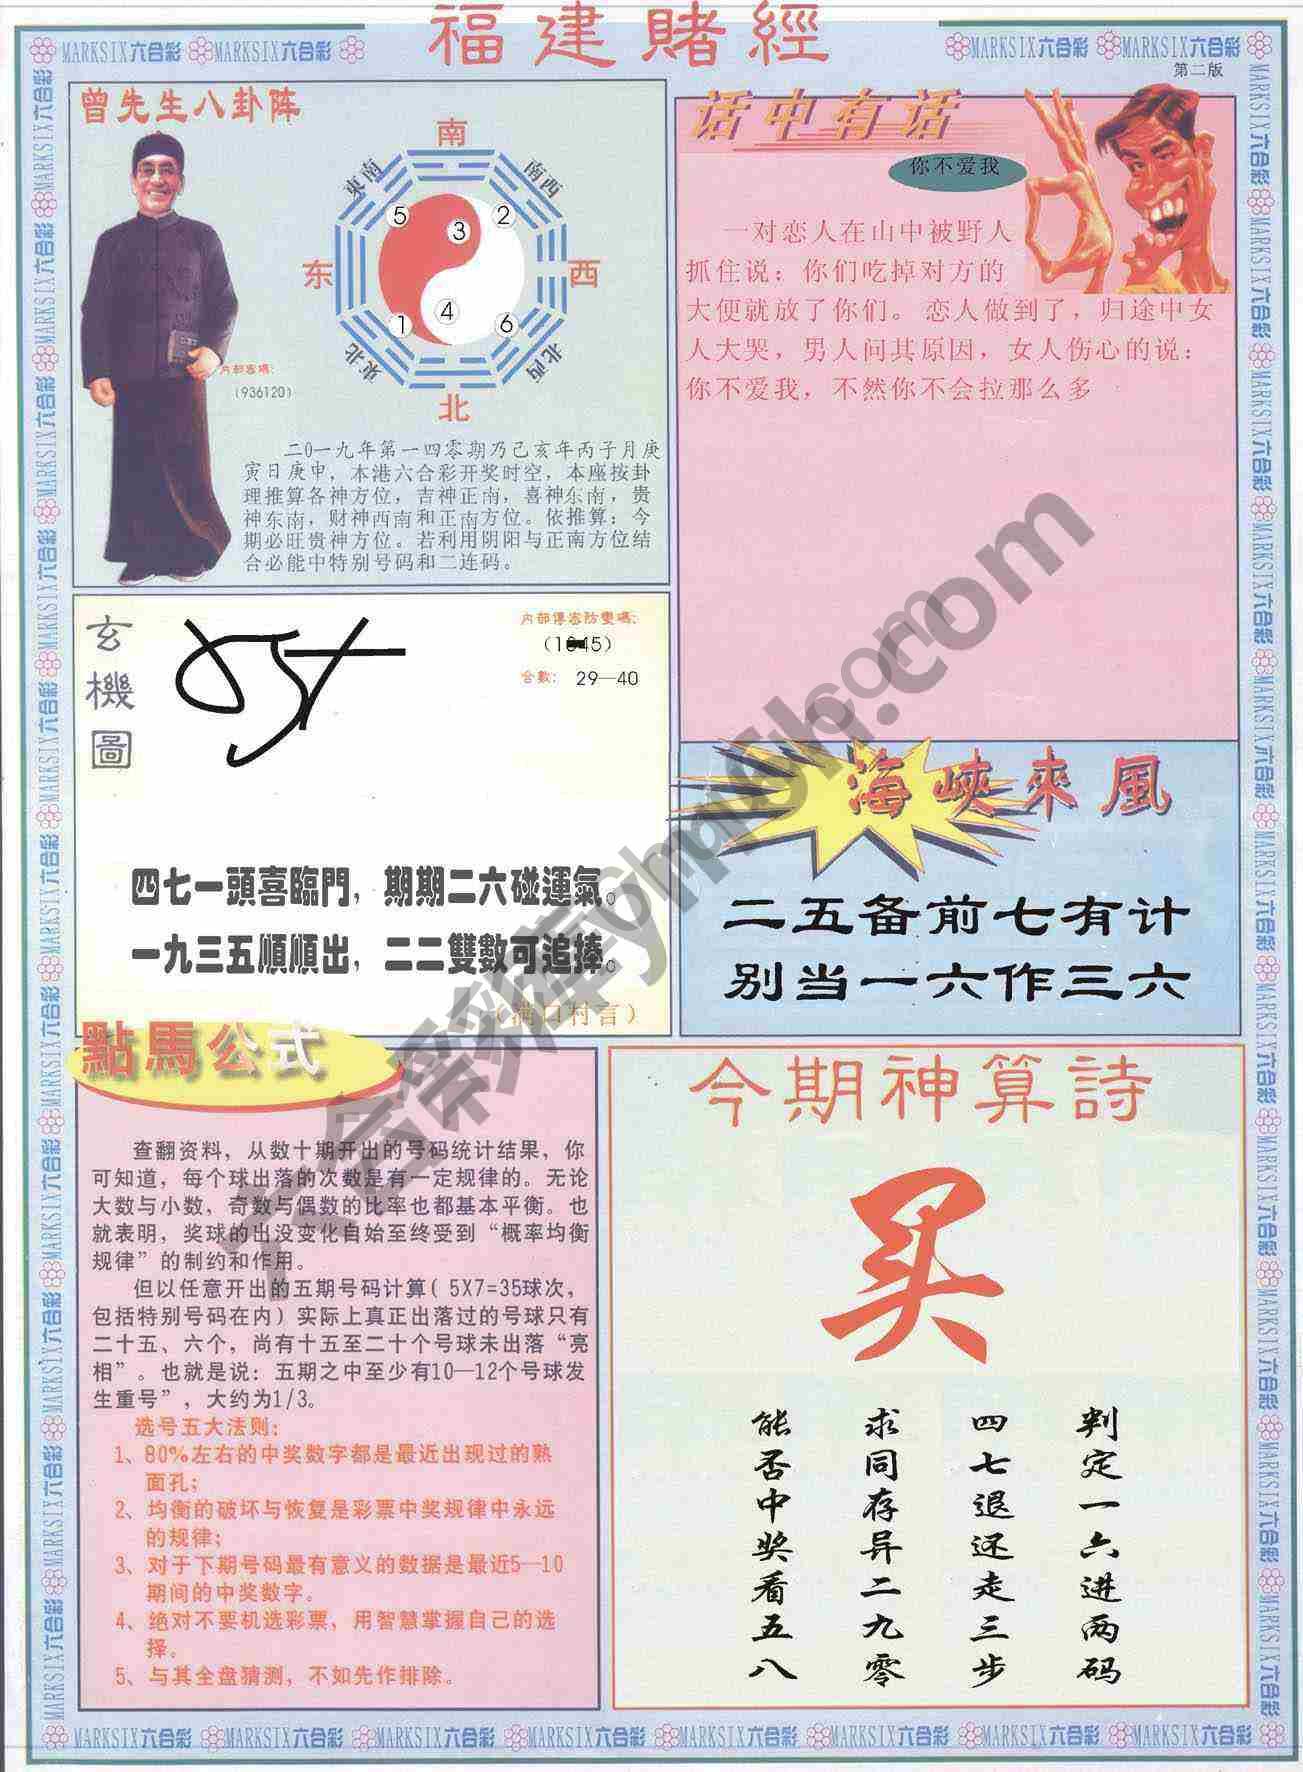 福建賭經
MARKSIX六合彩 MARKSIX六合彩
MARKSIX六合彩 MARKSIX六合彩
第二版
曾先生八卦阵
南
東南
南西
5
3
2
东
西
4
1
6
東北
北西
北
内部密碼:
(936120)
二0一九年第一四零期乃己亥年丙子月庚
寅日庚申，本港六合彩开奖时空，本座按卦
理推算各神方位，吉神正南，喜神东南，贵
神东南，财神西南和正南方位。依推算：今
期必旺贵神方位。若利用阴阳与正南方位结
合必能中特别号码和二连码。
话中有话
你不爱我
一对恋人在山中被野人
抓住说：你们吃掉对方的
大便就放了你们。恋人做到了，归途中女
人大哭，男人问其原因，女人伤心的说：
你不爱我，不然你不会拉那么多
玄機圖
内部傳密防變碼:
合數: 29—40
四七一頭喜臨門，期期二六碰運氣。
一九三五順順出，二二雙數可追捧。
（满口村言）
海峽來風
二五备前七有计
别当一六作三六
點馬公式
查翻资料，从数十期开出的号码统计结果，你
可知道，每个球出落的次数是有一定规律的。无论
大数与小数，奇数与偶数的比率也都基本平衡。也
就表明，奖球的出没变化自始至终受到“概率均衡
规律”的制约和作用。
但以任意开出的五期号码计算( 5X7=35球次，
包括特别号码在内) 实际上真正出落过的号球只有
二十五、六个，尚有十五至二十个号球未出落“亮
相”。也就是说：五期之中至少有10—12个号球发
生重号”，大约为1/3。
选号五大法则:
1、80%左右的中奖数字都是最近出现过的熟
面孔;
2、均衡的破坏与恢复是彩票中奖规律中永远
的规律;
3、对于下期号码最有意义的数据是最近5—10
期间的中奖数字。
4、绝对不要机选彩票，用智慧掌握自己的选
择。
5、与其全盘猜测，不如先作排除。
今期神算詩
买
判定一六进两码
四七退还走三步
求同存异二九零
能否中奖看五八
MARKSIX六合彩 MARKSIX六合彩 MARKSIX六合彩 MARKSIX六合彩 MARKSIX六合彩 MARKSIX六合彩 MARKSIX六合彩 MARKSIX六合彩